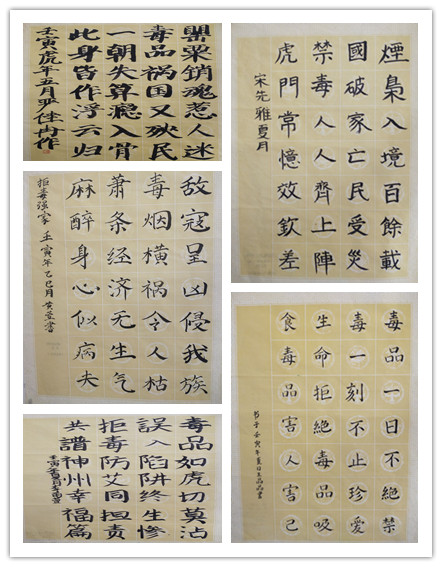 罌粟銷魂惹人迷
毒品祸国又殃民
一朝失算瘾入骨
此身皆作浮云归
壬寅虎年五月严佳冉作
煙梟入境百餘載
國破家亡民受災
禁毒人人齊上陣
虎門常憶效欽差
宋先雅夏月
敌寇呈凶侵我族
毒烟横祸令人枯
萧条经济无生气
麻醉身心似病夫
拒毒强家壬寅年乙巳月黄益書
毒品如虎切莫沾
誤入陷阱终生惨
拒毒防艾同担责
共譜神州幸福篇
壬寅
毒品一日不絕禁
毒一刻不止珍愛
生命拒絕毒品吸
食毒品害人害己
书于壬寅年夏日